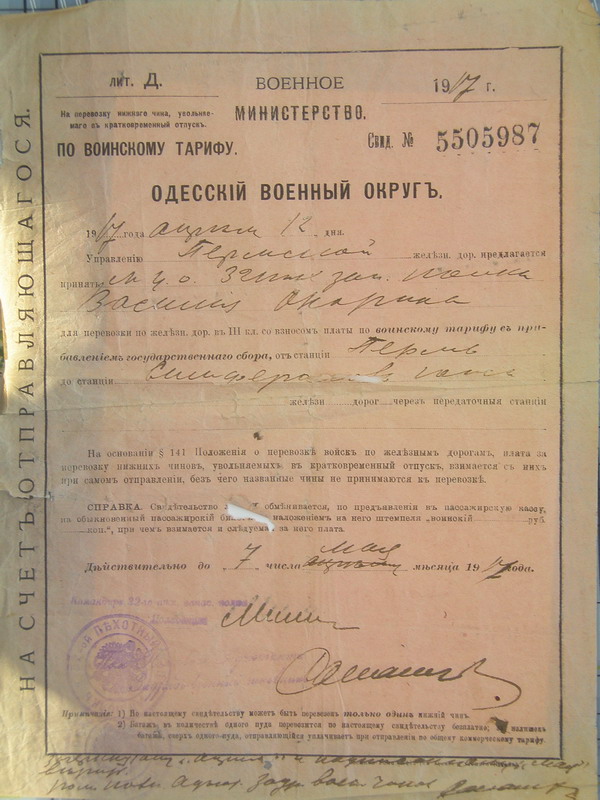 НА СЧЕТЪ ОТПРАВЛЯЮЩАГОСЯ.
лит. Д.
ВОЕННОЕ
1917 г.
На перевозку нижняго чина, увольняе-
маго въ кратковременный отпускъ.
МИНИСТЕРСТВО.
ПО ВОИНСКОМУ ТАРИФУ.
Свид. № 5505987
ОДЕССКІЙ ВОЕННЫЙ ОКРУГЪ.
1917 года апреля 12 дня.
Управленію Пермской желѣзн. дор. предлагается
принять зап.
Василия
для перевозки по желѣзн. дор. въ III кл. со взносомъ платы по воинскому тарифу съ при-
бавленіемъ государственнаго сбора, отъ станціи Пермь
до станціи
желѣзн дорог черезъ передаточныя станціи
На основаніи § 141 Положенія о перевозкѣ войскъ по желѣзнымъ дорогамъ, плата за
перевозку нижнихъ чиновъ, увольняемыхъ въ кратковременный отпускъ, взимается съ нихъ
при самомъ отправленіи, безъ чего названные чины не принимаются къ перевозкѣ.
СПРАВКА. Свидѣтельство обмѣнивается, по предъявленіи въ пассажирскую кассу,
на обыкновенный пассажирскій наложеніемъ на него штемпеля „воинскій руб.
коп.“, при чемъ взимается и за него плата.
Дѣйствительно до 7 числа мая мѣсяца 1917 года.
ПѢХОТНЫЙ
Примѣчанія: 1) По настоящему свидѣтельству можетъ быть перевезенъ только одинъ нижній чинъ.
2) Багажъ, въ количествѣ одного пуда перевозится по настоящему свидѣтельству безплатно, излишекъ
багажа, сверхъ одного пуда, отправляющійся уплачиваетъ при отправленіи по общему коммерческому тарифу.